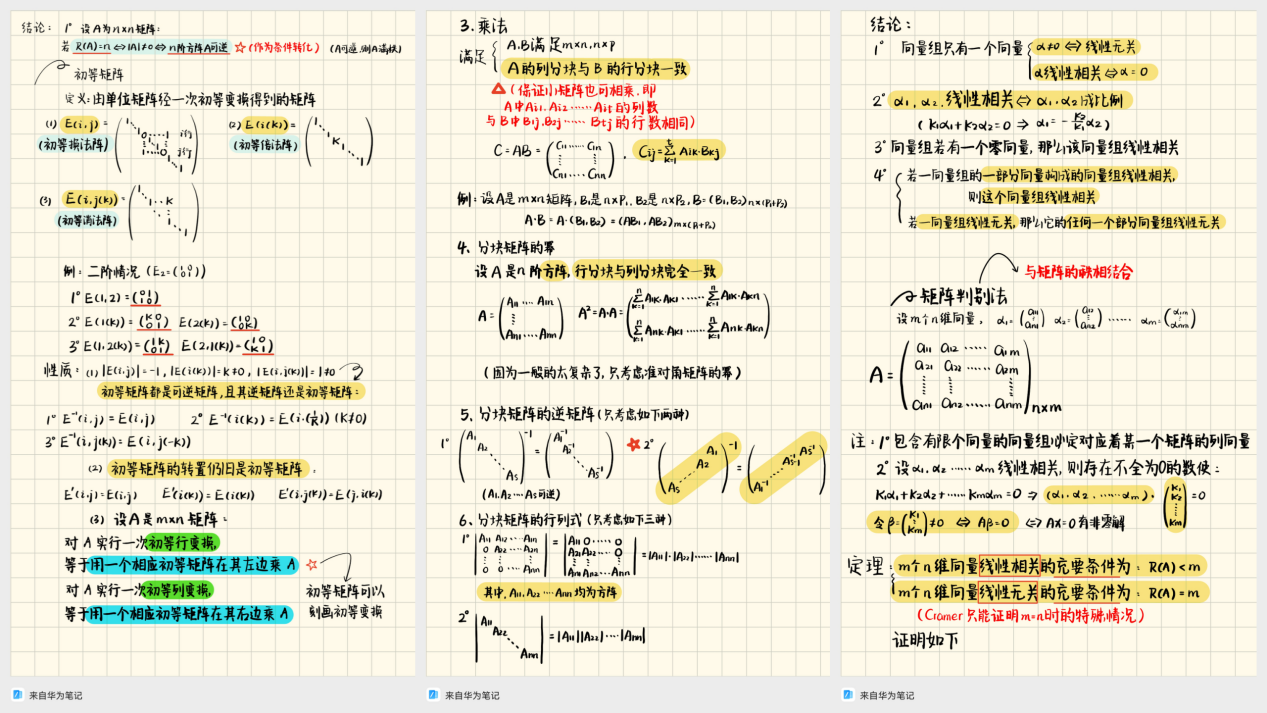 结论: 1° 设A为n×n矩阵:
若 R(A)=n ⇔ |A|≠0 ⇔ n阶方阵A可逆 ☆ (作为条件转化) (A可逆,则A满秩)
初等矩阵
定义:由单位矩阵经一次初等变换得到的矩阵
(1) E(i,j)= (2) E(i(k))=
(初等换法阵) (初等倍法阵)
(3) E(i,j(k))=
(初等消法阵)
例: 二阶情况 (E₂=(1 0
0 1))
1° E(1,2)=(0 1
1 0)
2° E(1(k))=(k 0
0 1) E(2(k))=(1 0
0 k)
3° E(1,2(k))=(1 k
0 1) E(2,1(k))=(1 0
k 1)
性质: (1) |E(i,j)|=-1, |E(i(k))|=k≠0, |E(i,j(k))|=1≠0
初等矩阵都是可逆矩阵,且其逆矩阵还是初等矩阵:
1° E⁻¹(i,j)=E(i,j) 2° E⁻¹(i(k))=E(i(1/k)) (k≠0)
3° E⁻¹(i,j(k))=E(i,j(-k))
(2) 初等矩阵的转置仍旧是初等矩阵:
E'(i,j)=E(i,j) E'(i(k))=E(i(k)) E'(i,j(k))=E(j,i(k))
(3) 设A是m×n矩阵:
对A实行一次初等行变换,
等于用一个相应初等矩阵在其左边乘A ☆
对A实行一次初等列变换, 初等矩阵可以
等于用一个相应初等矩阵在其右边乘A 刻画初等变换
来自华为笔记
3. 乘法
满足 A,B满足m×n,n×p
A的列分块与B的行分块一致
△(保证小矩阵也可相乘,即
A中Ai1,Ai2……Ait的列数
与B中B1j,B2j……Btj的行数相同)
C=AB=(C11……C1n
⋮ ⋮
Cn1……Cnn), Cij=∑Aik·Bkj
例:设A是m×n矩阵,B₁是n×P₁,B₂是n×P₂,B=(B₁,B₂)n×(P₁+P₂)
A·B=A·(B₁,B₂)=(AB₁,AB₂)m×(P₁+P₂)
4、分块矩阵的幂
设A是n阶方阵,行分块与列分块完全一致
A=(A11……A1n
⋮
An1……Ann) A²=A·A=(∑A1k·Ak1……∑A1k·Akn
⋮
∑Ank·Ak1……∑Ank·Akn)
(因为一般的太复杂了,只考虑准对角矩阵的幂)
5、分块矩阵的逆矩阵(只考虑如下两种)
1° (A₁ A₂ ⋱ As)⁻¹=(A₁⁻¹ A₂⁻¹ ⋱ As⁻¹) ☆ 2° (A₁ A₂ ⋰ As)⁻¹=(As⁻¹ As-1⁻¹ ⋰ A₁⁻¹)
(A₁,A₂……As可逆)
6、分块矩阵的行列式(只考虑如下三种)
1° |A11 A12……A1n
0 A22……A2n
⋮
0 0……Ann|=|A11 0……0
A21 A22……0
⋮
An1 An2……Ann|=|A11|·|A22|……|Ann|
其中,A11,A22……Ann均为方阵
2° |A11 A22 ⋱ Ann|=|A11||A22|……|Ann|
来自华为笔记
结论:
1° 向量组只有一个向量 α≠0 ⇔ 线性无关
α线性相关 ⇔ α=0
2° α₁,α₂线性相关 ⇔ α₁,α₂成比例
(k₁α₁+k₂α₂=0 ⇒ α₁=-k₂/k₁α₂)
3° 向量组若有一个零向量,那么该向量组线性相关
4° 若一向量组的一部分向量构成的向量组线性相关,
则这个向量组线性相关
若一向量组线性无关,那么它的任何一个部分向量组线性无关
与矩阵的秩相结合
矩阵判别法
设m个n维向量, α₁=(a11
a21
⋮
an1) α₂=(a12
⋮
an2)…… αm=(a1m
⋮
anm)
A=(a11 a12……a1m
a21 a22……a2m
⋮ ⋮ ⋮
an1 an2……anm)n×m
注:1° 包含有限个向量的向量组必定对应着某一个矩阵的列向量
2° 设α₁,α₂……αm线性相关,则存在不全为0的数使:
k₁α₁+k₂α₂+……kmαm=0 ⇒ (α₁,α₂,……αm)·(k₁
k₂
⋮
km)=0
令β=(k₁
⋮
km)≠0 ⇔ Aβ=0 ⇔ Ax=0有非零解
定理: m个n维向量线性相关的充要条件为: R(A)<m
m个n维向量线性无关的充要条件为: R(A)=m
(Cramer只能证明m=n时的特殊情况)
证明如下
来自华为笔记